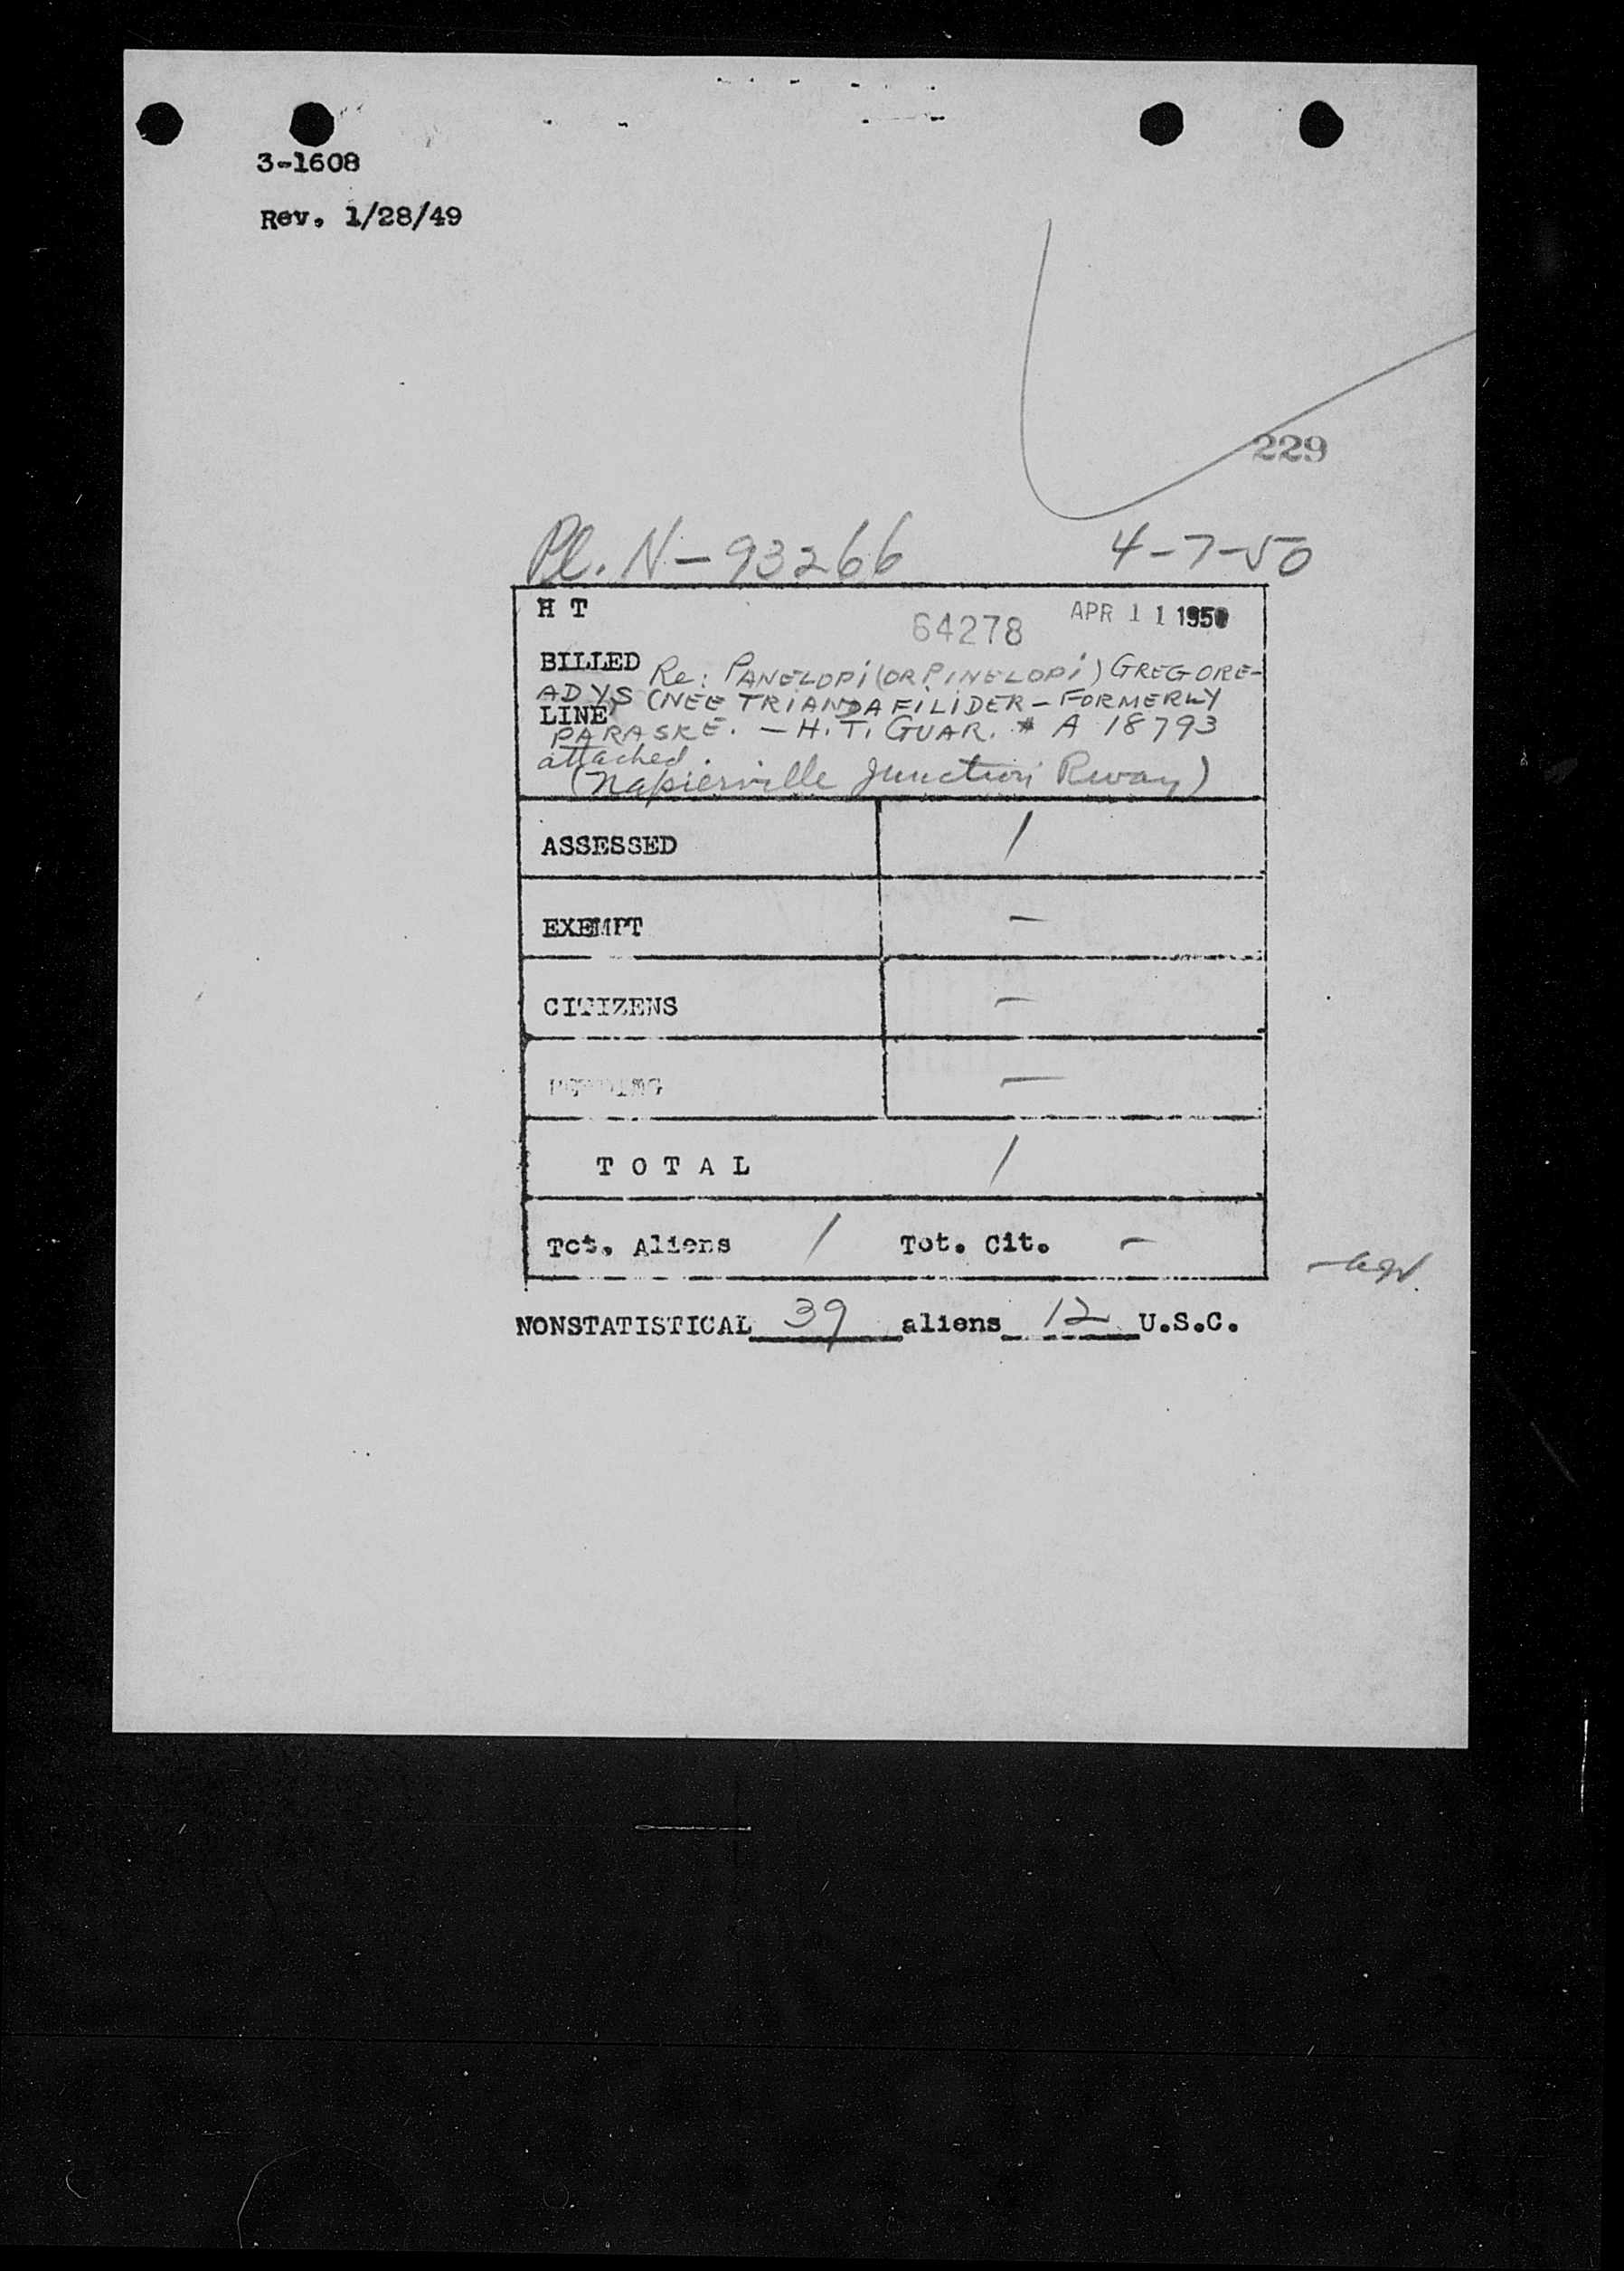 3-1608
Rev. 1/28/49
229
Pl. N-93266 4-7-50
H T 64278 APR 11 1950
BILLED Re: PANELOPI (OR PINELOPI) GREGORE-
ADYS (NEE TRIANDAFILIDER - FORMERLY
LINE
PARASKE. - H.T. GUAR. # A 18793
attached
(Napierville Junction Rway)
ASSESSED 1
EXEMPT -
CITIZENS -
-
T O T A L 1
Tot. Aliens 1 Tot. Cit. -
NONSTATISTICAL 39 aliens 12 U.S.C.